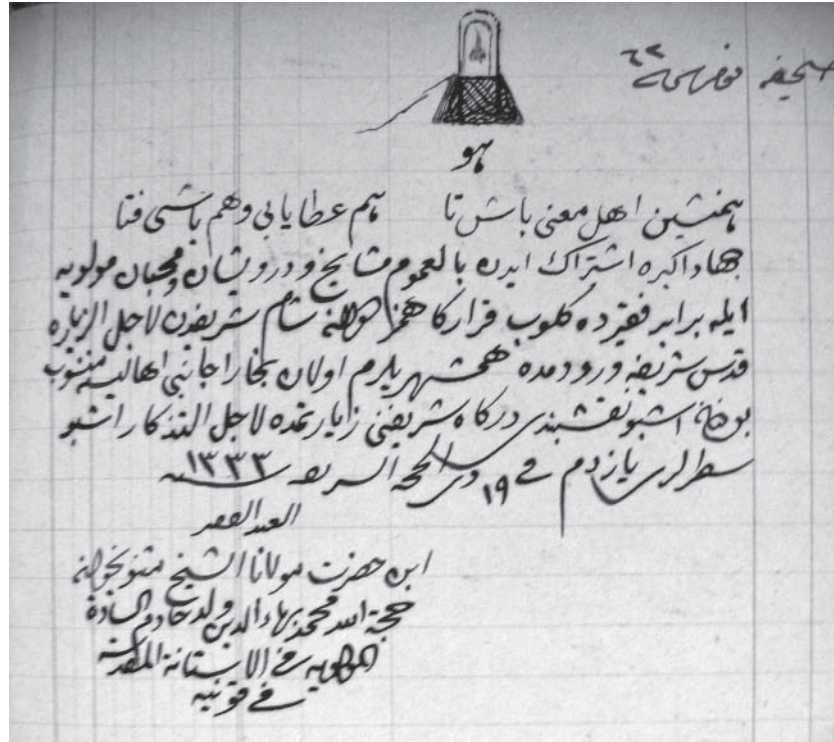 صحیفه نومروسی ٦٢
هو
همنشین اهل معنی باش تا هم عطا یابی وهم باشی فتا
جهاد اکبره اشتراک ایدن بالعموم مشایخ و درویشان و محبان مولویه
ایله برابر فقیرده کلوب قرارکاهمز اولان شام شریفدن لاجل الزیاره
قدس شریفه ورودمده همشهریلرم اولان بخارا جانبی اهالیسنه منسوب
بولنان اشبو نقشبندی درکاه شریفنی زیارتمده لاجل التذکار اشبو
سطرلری یازدم فی ١٩ ذی الحجه الشریفه سنه ١٣٣٣
العبد الفقیر
ابن حضرت مولانا الشیخ مثنویخوان
حجة الله محمد بهاء الدین ولد خادم السادة
المولویه فی الاستانة المقدسة
فی قونیه